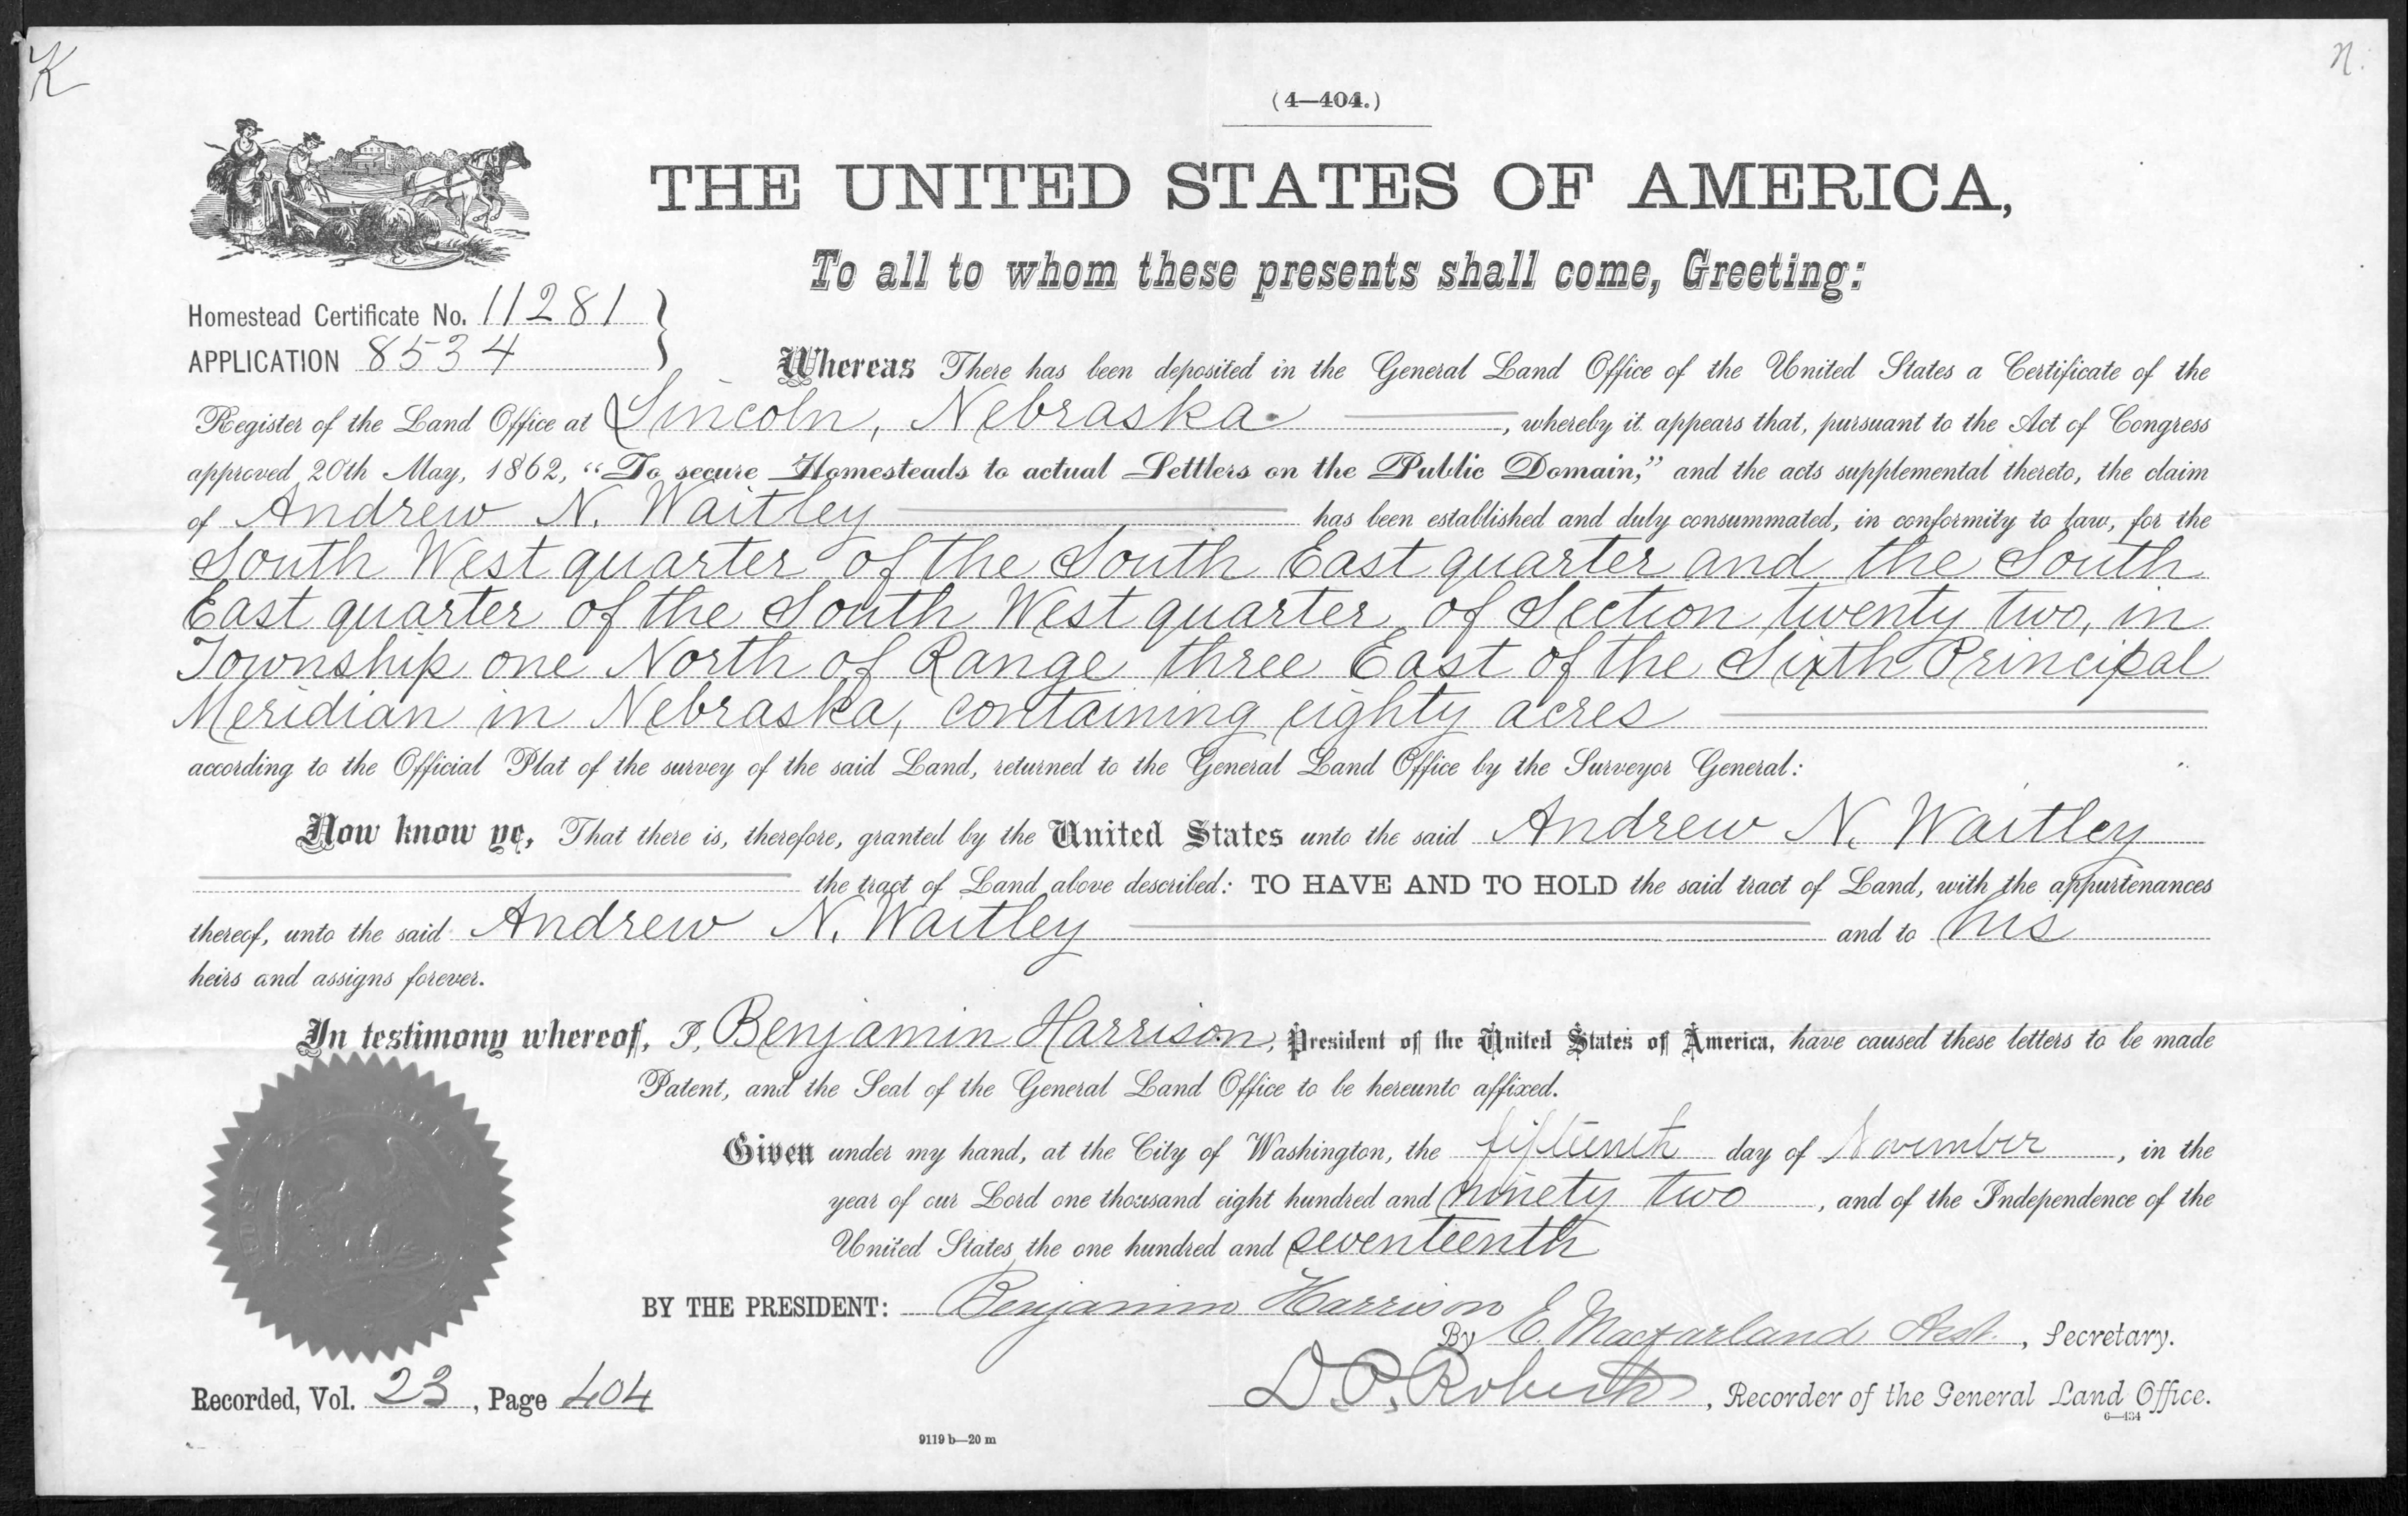 K
N.
(4—404.)
THE UNITED STATES OF AMERICA,
To all to whom these presents shall come, Greeting:
Homestead Certificate No. 11281
APPLICATION 8534
Whereas There has been deposited in the General Land Office of the United States a Certificate of the
Register of the Land Office at Lincoln, Nebraska, whereby it appears that, pursuant to the Act of Congress
approved 20th May, 1862, “To secure Homesteads to actual Settlers on the Public Domain,” and the acts supplemental thereto, the claim
of Andrew N. Waitley has been established and duly consummated, in conformity to law, for the
South West quarter of the South East quarter and the South
East quarter of the South West quarter of Section twenty two, in
Township one North of Range three East of the Sixth Principal
Meridian in Nebraska, containing eighty acres
according to the Official Plat of the survey of the said Land, returned to the General Land Office by the Surveyor General:
Now know ye, That there is, therefore, granted by the United States unto the said Andrew N. Waitley
the tract of Land above described: TO HAVE AND TO HOLD the said tract of Land, with the appurtenances
thereof, unto the said Andrew N. Waitley and to his
heirs and assigns forever.
In testimony whereof, I, Benjamin Harrison, President of the United States of America, have caused these letters to be made
Patent, and the Seal of the General Land Office to be hereunto affixed.
Given under my hand, at the City of Washington, the fifteenth day of November, in the
year of our Lord one thousand eight hundred and ninety two, and of the Independence of the
United States the one hundred and seventeenth
BY THE PRESIDENT: Benjamin Harrison
By E. Macfarland Asst., Secretary.
D. P. Roberts, Recorder of the General Land Office.
Recorded, Vol. 23, Page 404
6—434
9119 b—20 m